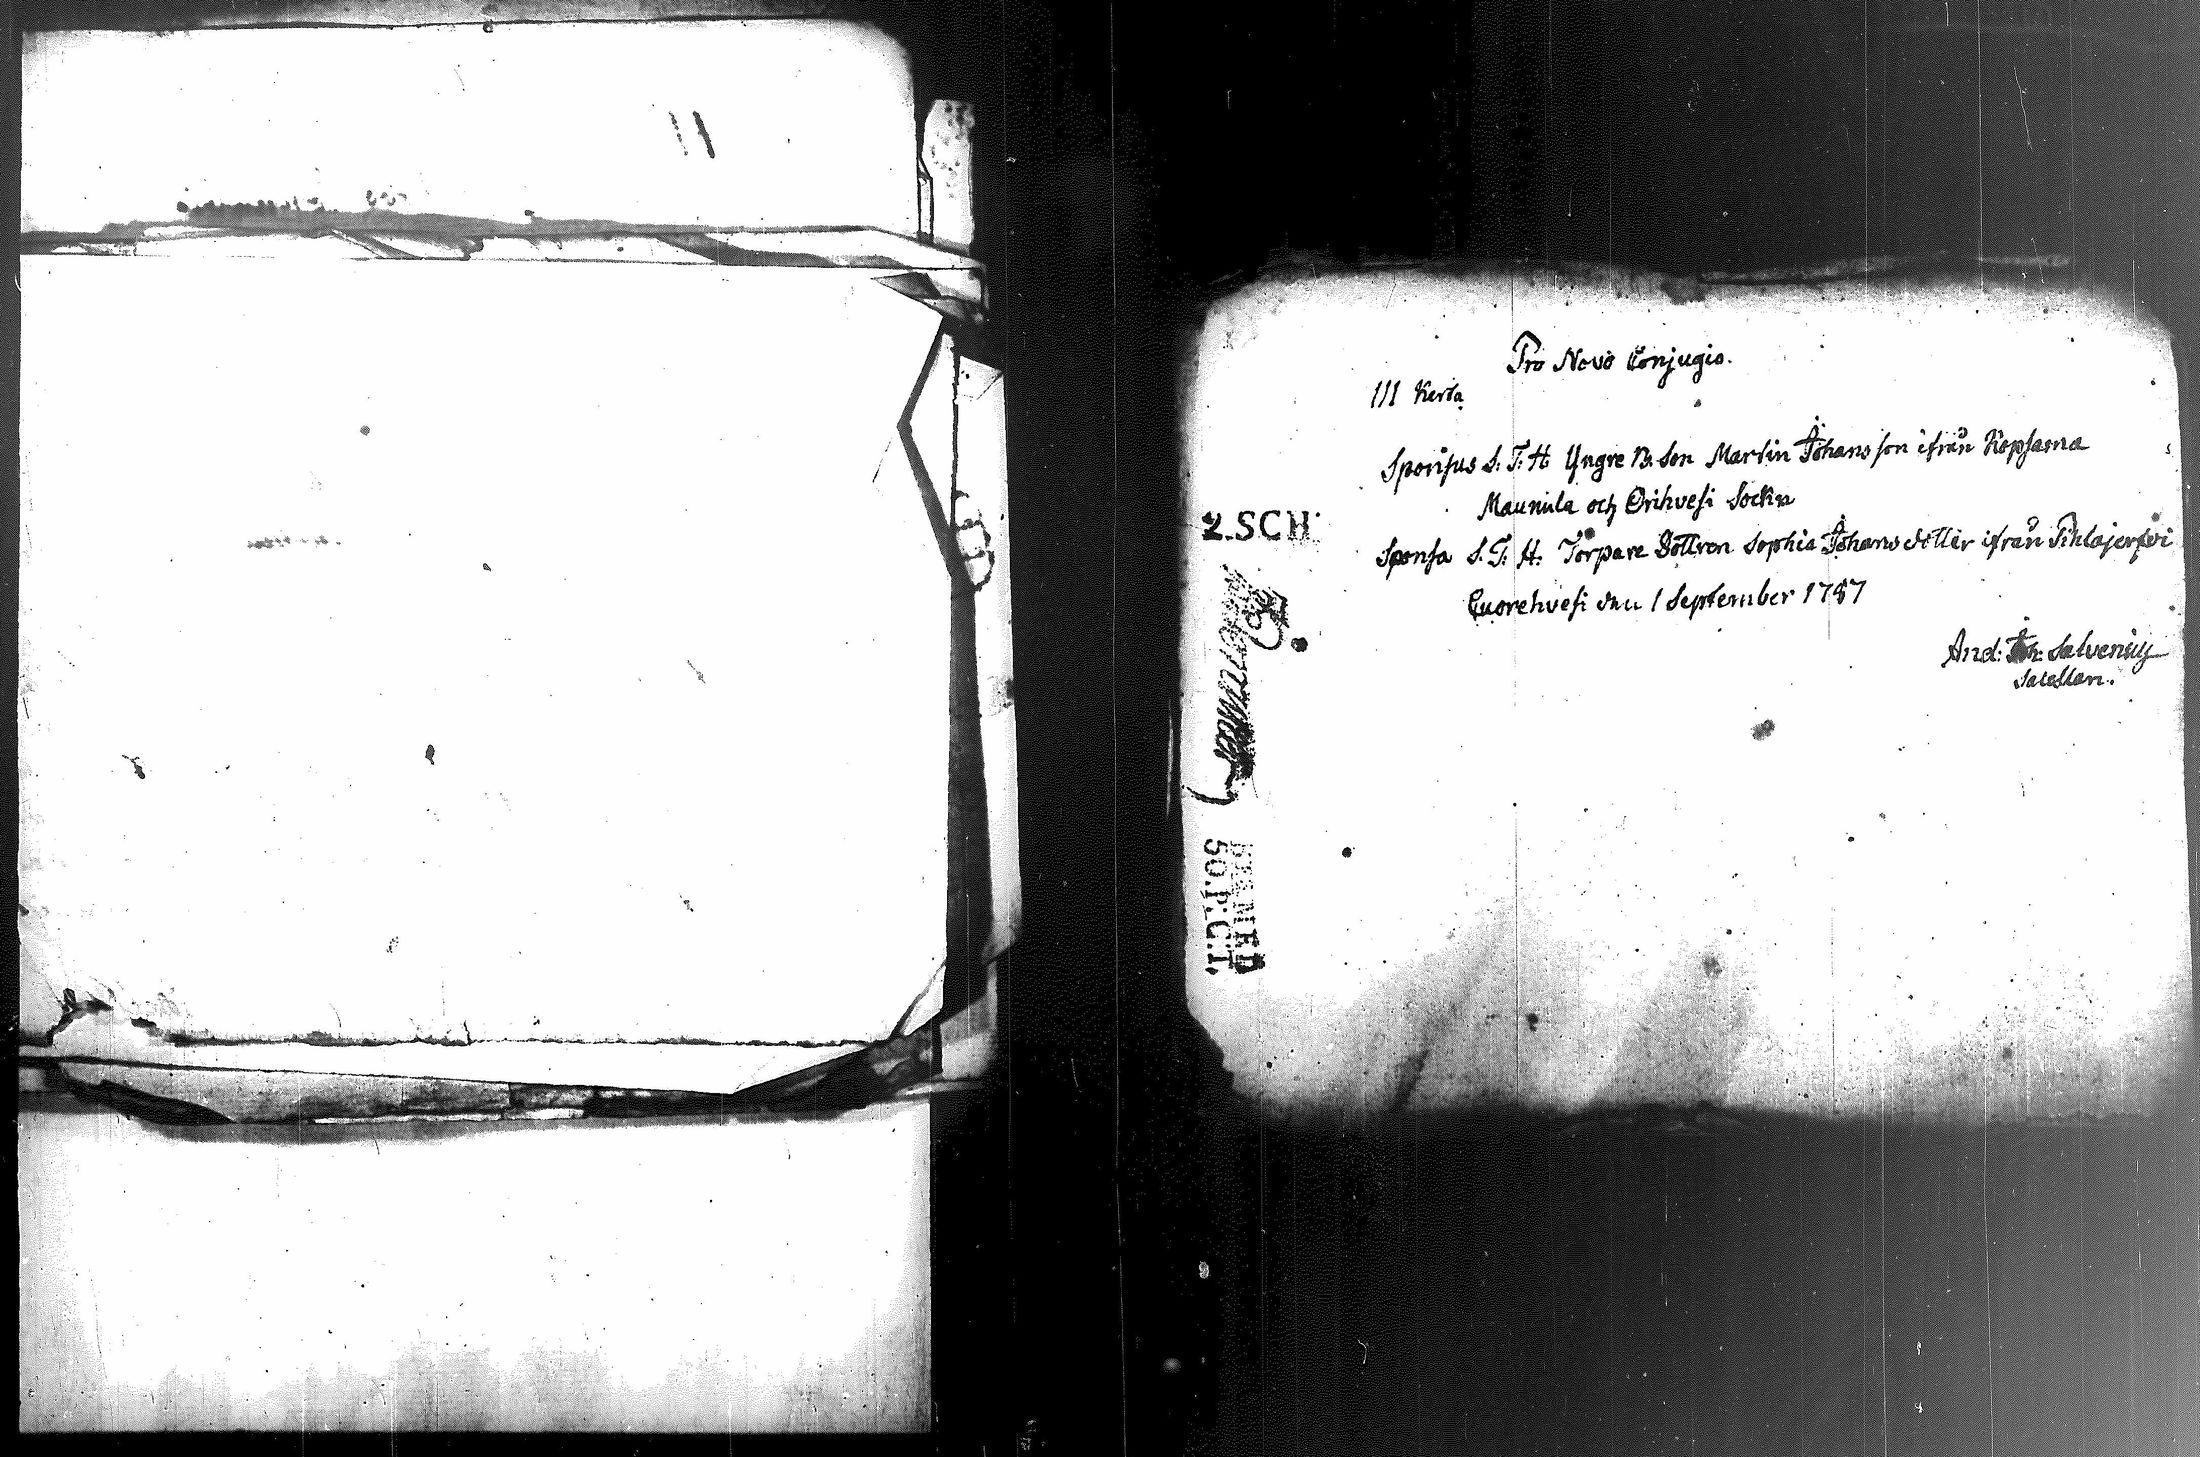 Pro Novo Conjugio.
III Kerta
Sponsus S. T. H. Yngre B. Son Martin Johansson ifrån Kopsama
Maunula och Orihvesi Sockn
Sponsa S. T. H. Torpare Dottren Sophia Johans dotter ifrån Pihlajerfvi
Quorehvesi den 1 September 1787
And: Joh: Salvenius
Sacellan.
2.SCH
50.P:C:T.